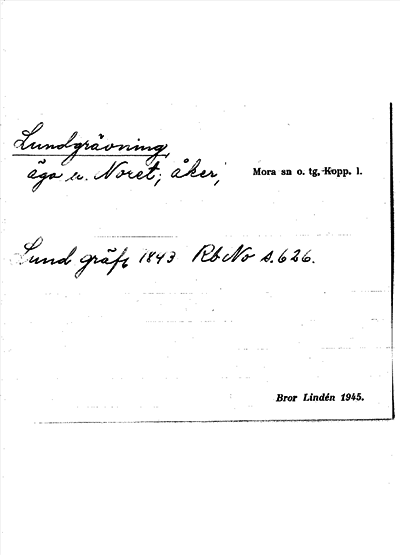 Lundgrävning,
äga u. Noret; åker; Mora sn o. tg, Kopp. l.
Lund gräfg 1843 Rb No s. 626.
Bror Lindén 1945.